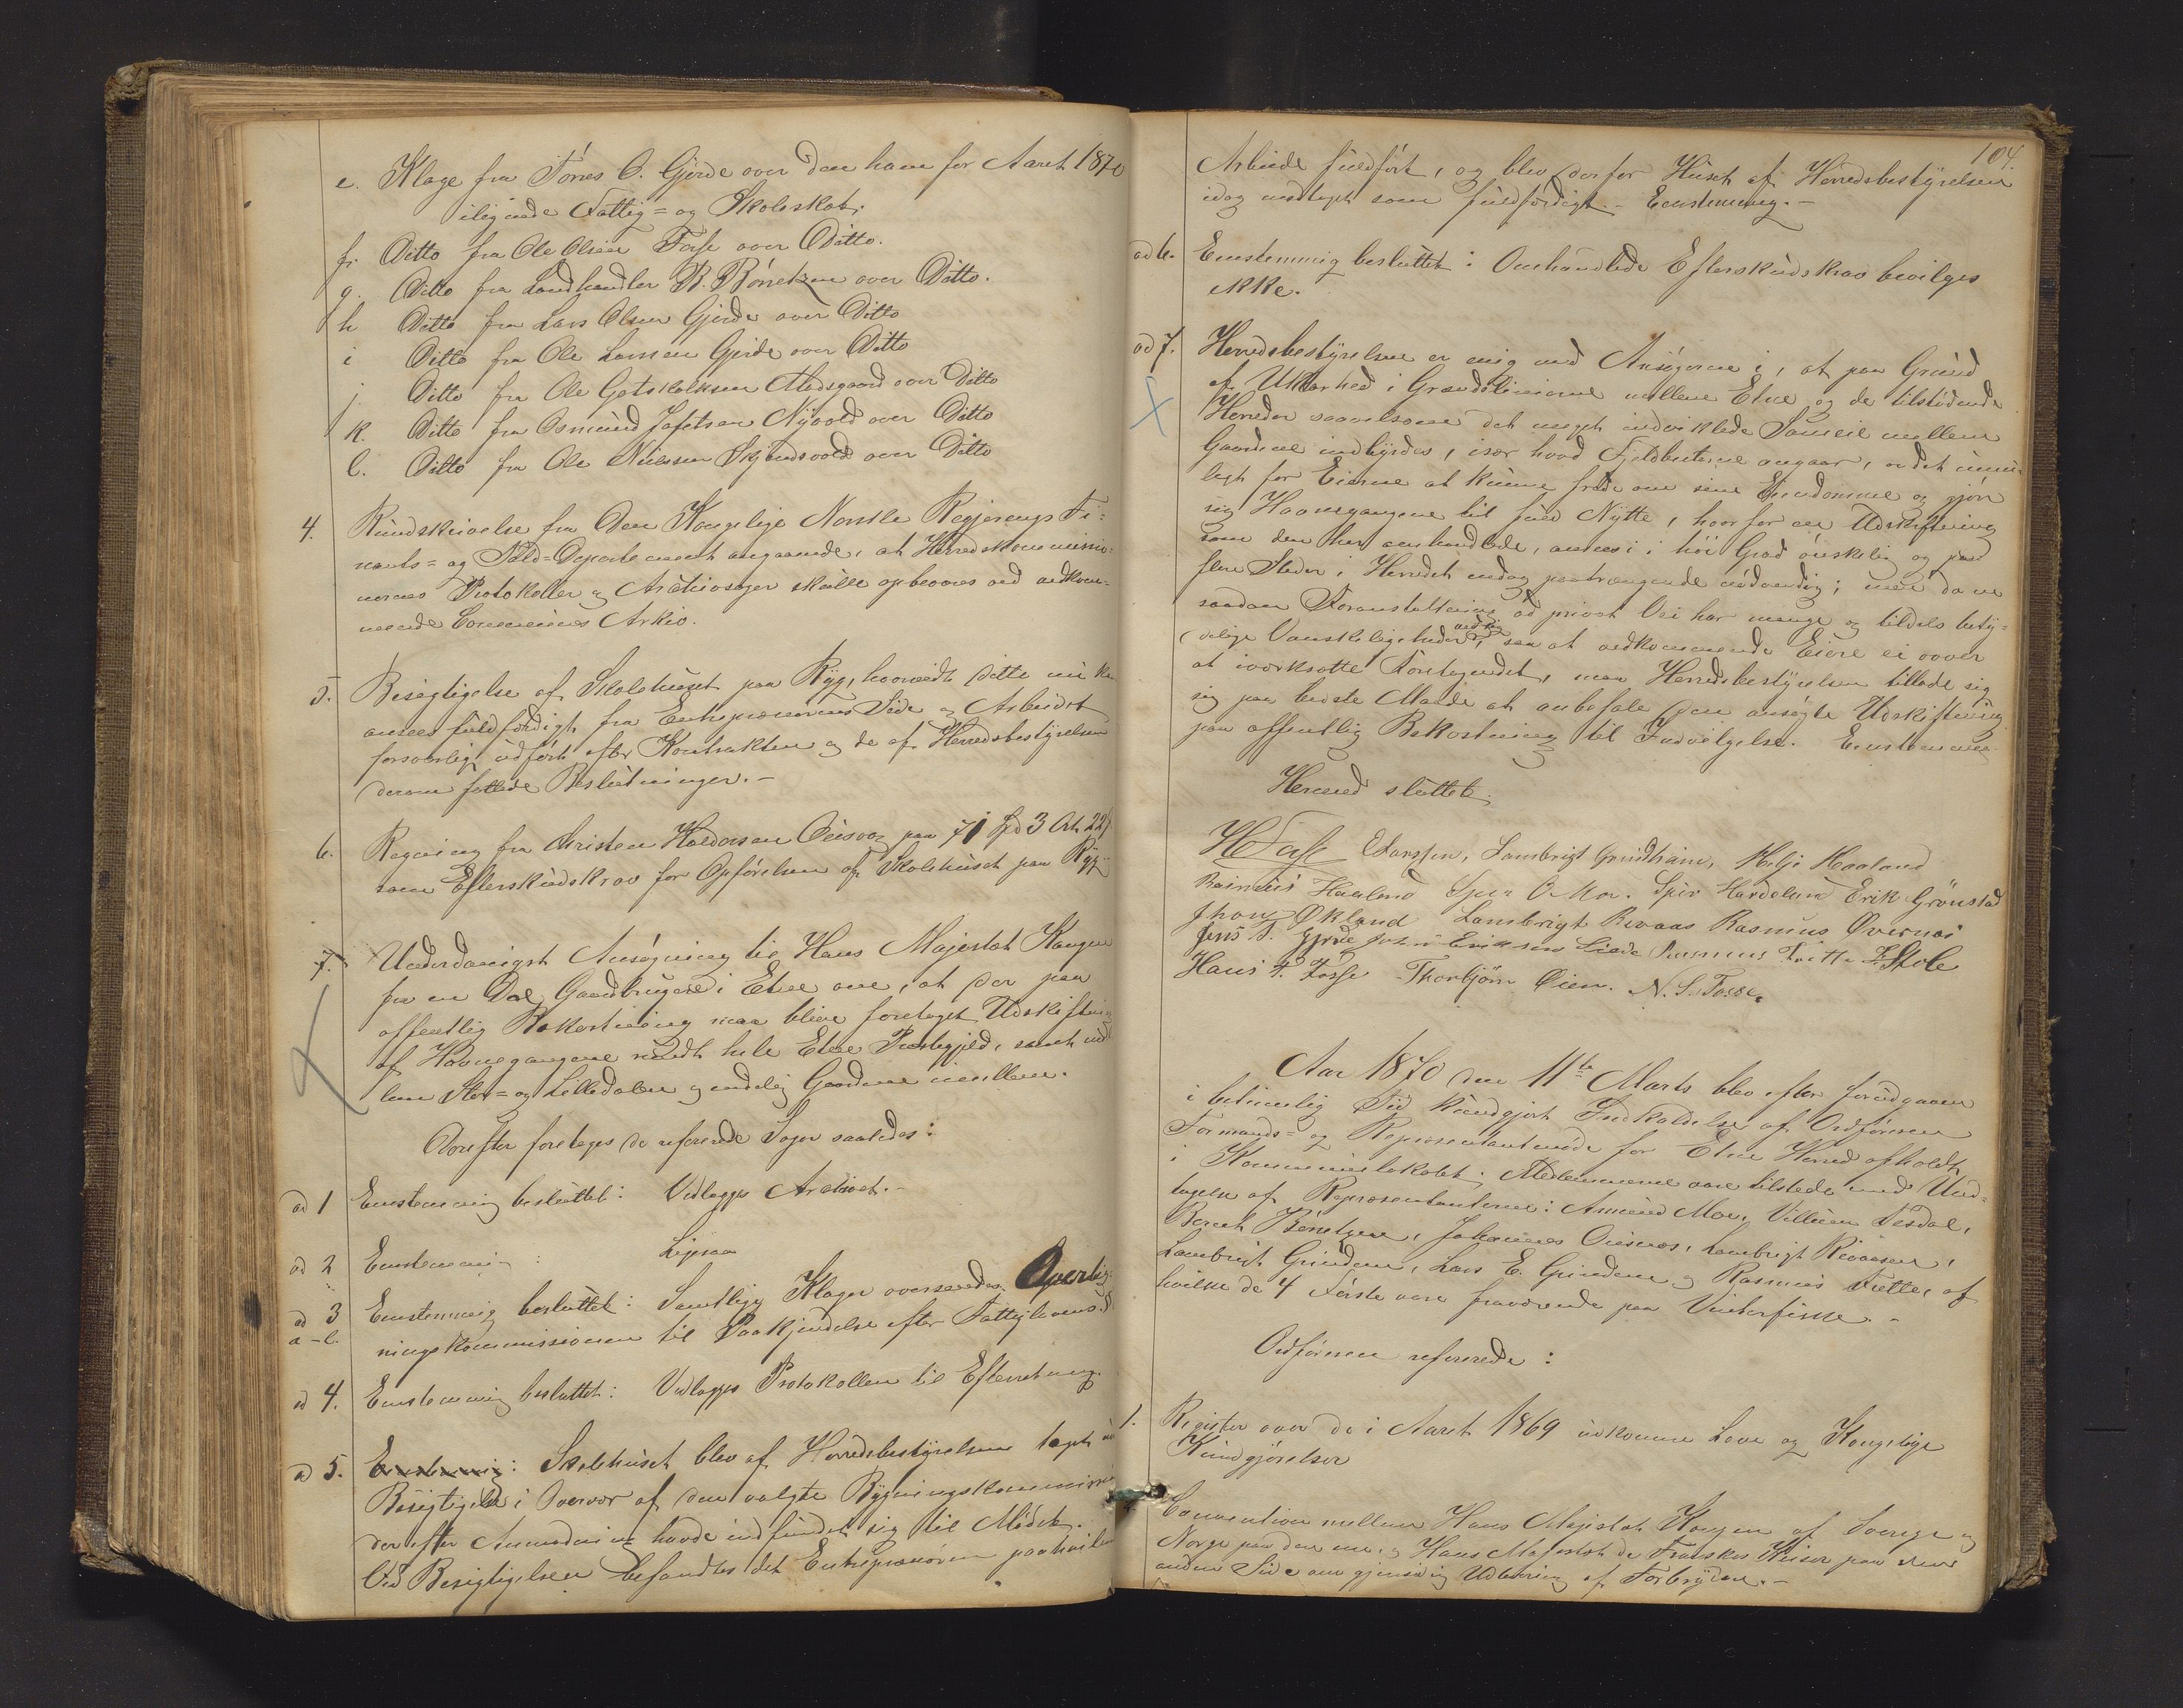 e. Klage fra Tónes O. Gjerde over den ham for Aaret 1870
ilignede Fattig= og Skoleskat.
f. Ditto fra Ole Olsen Fosse over Ditto.
g. Ditto fra Landhandler B. Börretzen over Ditto.
h Ditto fra Lars Olsen Gjerde over Ditto
i Ditto fra Ole Larsen Gjerde over Ditto
j. Ditto fra Ole Gotskalksen Medsgaard over Ditto
k. Ditto fra Osmund Jafetsen Nÿvold over Ditto
l. Ditto fra Ole Nielssen Skjendsvold over Ditto
4. Rundskrivelse fra Den Kongelige Norske Regjerings Fi=
nants= og Told=Departement angaaende, at Herredskommissio=
nernes Protokoller og Archivsager skulle opbevares ved vedkom=
mende Communes Arkiv.
5. Besigtigelse af Skolehuset paa Rÿg, hvorvidt dette nu kan
ansees fuldfærdigt fra Entreprenørens Side og Arbeidet
forsvarligt udført efter Kontrakten og de af Herredsbestÿrelsen
derom fattede Beslutninger.-
6. Regning fra Christen Haldorsen Ousvog paa 71 Spd 3 Ort 22 ß
som Efterskudskrav for Opførelsen af Skolehuset paa Rÿg.
7. Underdanigst Ansøgning til Hans Majestæt Kongen
fra en Deel Gaardbrugere i Etne om, at der paa
offentlig Bekostning maa blive foretaget Udskiftning
af Havnegangene rundt hele Etne Prestegjeld, samt mel
lem Stor= og Lilledalen og endelig Gaardene imellem.
Derefter foretoges de refererede Sager saaledes:
ad 1 Eenstemmig besluttet: Vedlægges Archivet.-
ad 2 Eenstemmig : Ligesaa
ad 3 Eenstemmig besluttet: Samtlige Klager oversendes Overlig
a-l. ningskommissionen til Paakjendelse efter Fattiglovens §
ad 4. Eenstemmig besluttet: Vedlægges Protokollen til Efterretning.
ad 5. Eenstemmig: Skolehuset blev af Herredsbestÿrelsen taget i
Besigtigelse i Overvær af den valgte Bÿgningskommission
der efter Anmodning havde indfundet sig til Mødet.
Ved Besigtigelsen befandtes det Entreprenøren paahvilende
104.
Arbeide fuldført, og blev derfor Huset af Herredsbestÿrelsen
idag modtaget som fuldfærdigt.- Eenstemmig.-
ad 6. Eenstemmig besluttet: Omhandlede Efterskudskrav bevilges
ikke.
ad 7. Herredsbestÿrelsen er enig med Ansøgerne i, at paa Grund
af Uklarhed i Grændselinierne mellem Etne og de tilstødende
Herreder saavelsom det meget indviklede Sameie mellem
Gaardene indbÿrdes, især hvad Fjeldbeiterne angaar, er det umu=
ligt for Eierne at kunne frede om sine Eiendomme og gjøre
sig Havnegangene til fuld Nÿtte, hvorfor en Udskiftning
som den her omhandlede, ansees i høi Grad ønskelig og paa
flere Steder i Herredet endog paatrængende nødvendig; men da en
saadan Foranstaltning ad privat Vei har mange og tildels betÿ=
delige Vanskeligheder ved sig, saa at vedkommende Eiere ei vover
at iværksætte Foretagendet, maa Herredsbestÿrelsen tillade sig
sig paa bedste Maade at anbefale den ansøgte Udskiftning
paa offentlig Bekostning til Indvilgelse. Eenstemmig
Hermed sluttet.
HFosse ELarssen, Lambrigt Grindheim, Helje Haaland
Rasmus Haaland Sjur O. Moe. Sjur Hardeland Erik Grönstad
Jhon Økland Lambrigt Revaas Rasmus Øvernæs
Jens T. Gjerde Johannes Eriksen Liade Rasmus Tvette EStole
Hans T. Fosse Thorbjörn Øien. N. S. Fosse.
Aar 1870 den 11te Marts blev efter forudgaaen
i betimelig Tid kundgjort Indkaldelse af Ordføreren
Formands= og Representantmøde for Etne Herred afholdt
i Kommunelokalet. Medlemmerne vare tilstede med Und=
tagelse af Representanterne: Amund Moe, Villum Tesdal,
Berent Bönetzen, Johannes Ousvos, Lambrigt Revaasen,
Lambrigt Grindem, Lars E. Grindem og Rasmus Tvette, af
hvilke de 4 Første vare fraværende paa Vinterfiske.-
Ordføreren refererede:
1. Register over de i Aaret 1869 udkomne Love og Kongelige
Kundgjørelser
2. Convention mellem Hans Majestæt Kongen af Sverige og
Norge paa den ene, og Hans Majestæt de Franskes Keiser paa den
anden Side om gjensidig Udlevering af Forbrÿdere.-